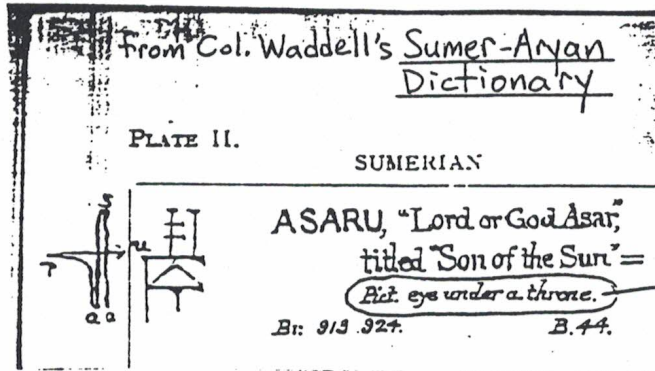 from Col. Waddell's Sumer-Aryan
Dictionary
PLATE II.
SUMERIAN
ASARU, "Lord or God Asar,"
titled "Son of the Sun" =
Pict. eye under a throne.
Br: 913.924. B.44.
s
u
r
a a